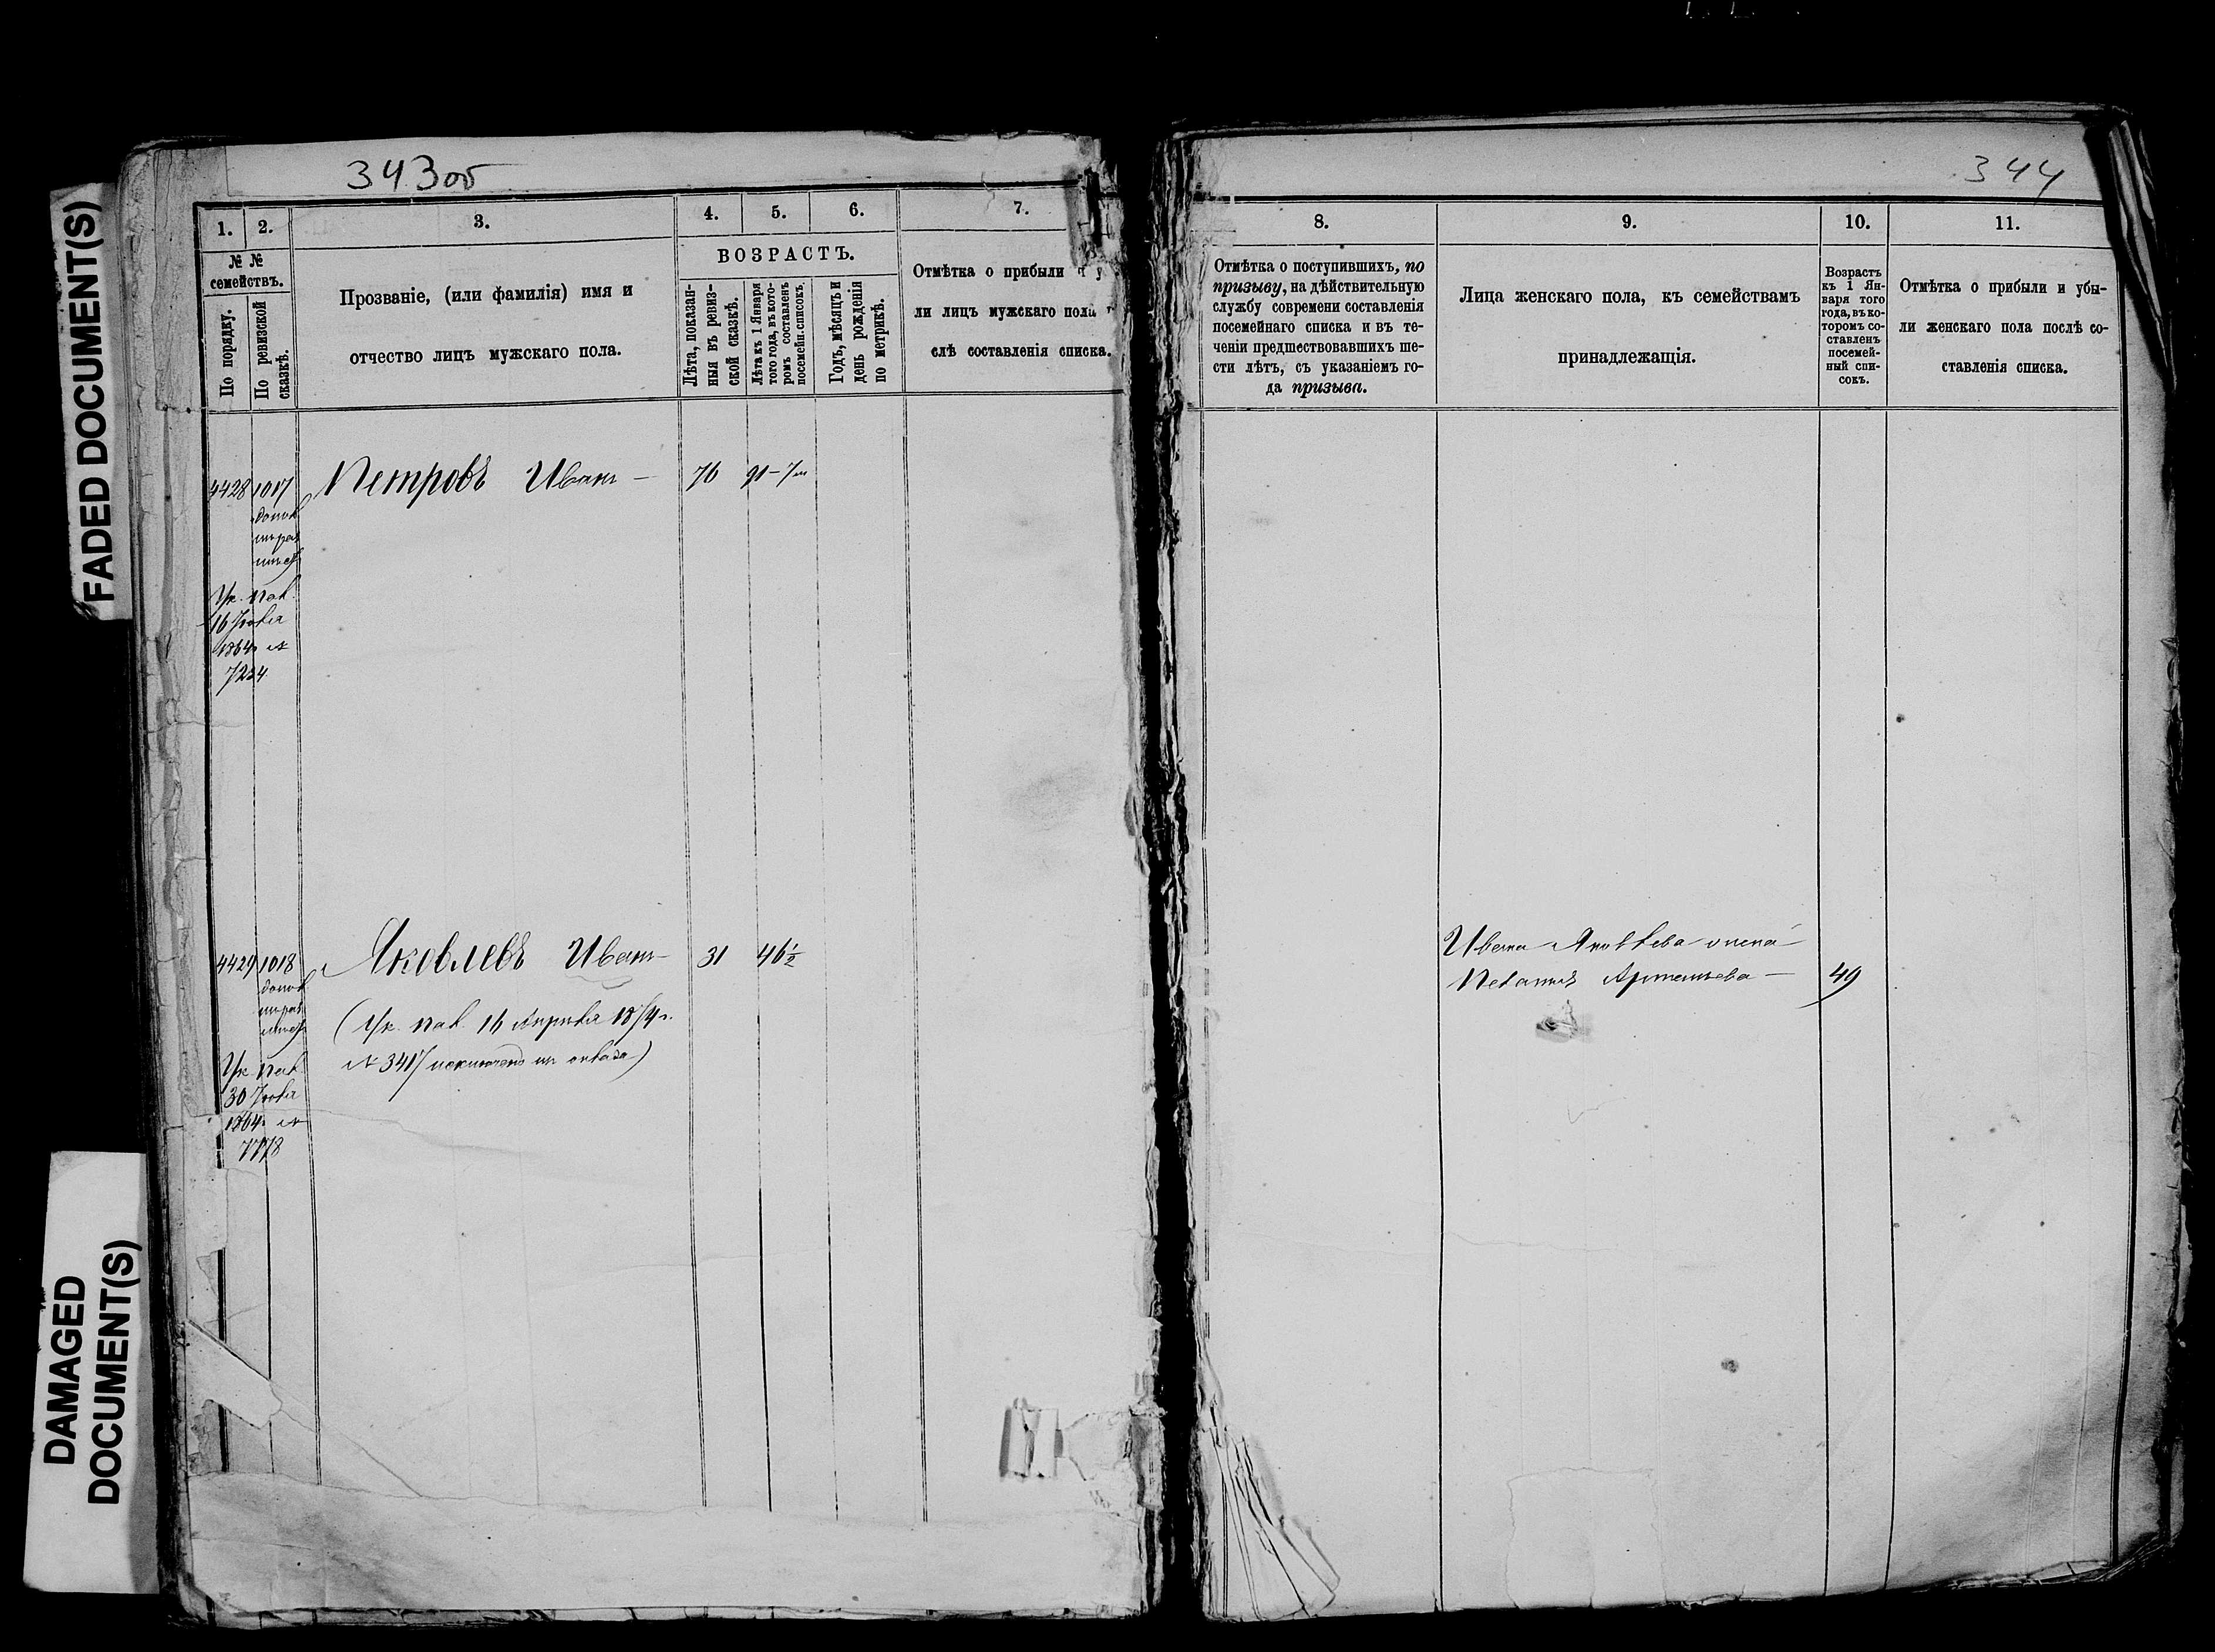 FADED DOCUMENT(S)
DAMAGED
DOCUMENT(S)
343об
1. 2. 3. 4. 5. 6. 7.
№ №
семействъ.
По порядку.
По ревизской
сказкѣ.
Прозваніе, (или фамилія) имя и
отчество лицъ мужскаго пола.
ВОЗРАСТЪ.
Лѣта, показан-
ныя въ ревиз-
ской сказкѣ.
Лѣта къ 1 Января
того года, въ кото-
ромъ составленъ
посемейн. списокъ.
Годъ, мѣсяцъ и
день рожденія
по метрикѣ.
Отмѣтка о прибыли и у
ли лицъ мужскаго пола
слѣ составленія списка.
4428 1017 Петровъ Иванъ — 76 91-7м
Ук. Пал.
16 Іюля
1864 г. №
7224
4429 1018 Яковлевъ Иванъ — 31 46½
(Ук. пал. 16 Апрѣля 1874 г.
№ 3417 исключенъ изъ оклада)
Ук. Пал.
30 Іюля
1864 г. №
7778
344
8. 9. 10. 11.
Отмѣтка о поступившихъ, по
призыву, на дѣйствительную
службу современи составленія
посемейнаго списка и въ те-
ченіи предшествовавшихъ ше-
сти лѣтъ, съ указаніемъ го-
да призыва.
Лица женскаго пола, къ семействамъ
принадлежащія.
Возрастъ
къ 1 Ян-
варя того
года, въ ко-
торомъ со-
ставленъ
посемей-
ный спи-
сокъ.
Отмѣтка о прибыли и убы-
ли женскаго пола послѣ со-
ставленія списка.
Ивана Яковлева жена
Артемьева — 49